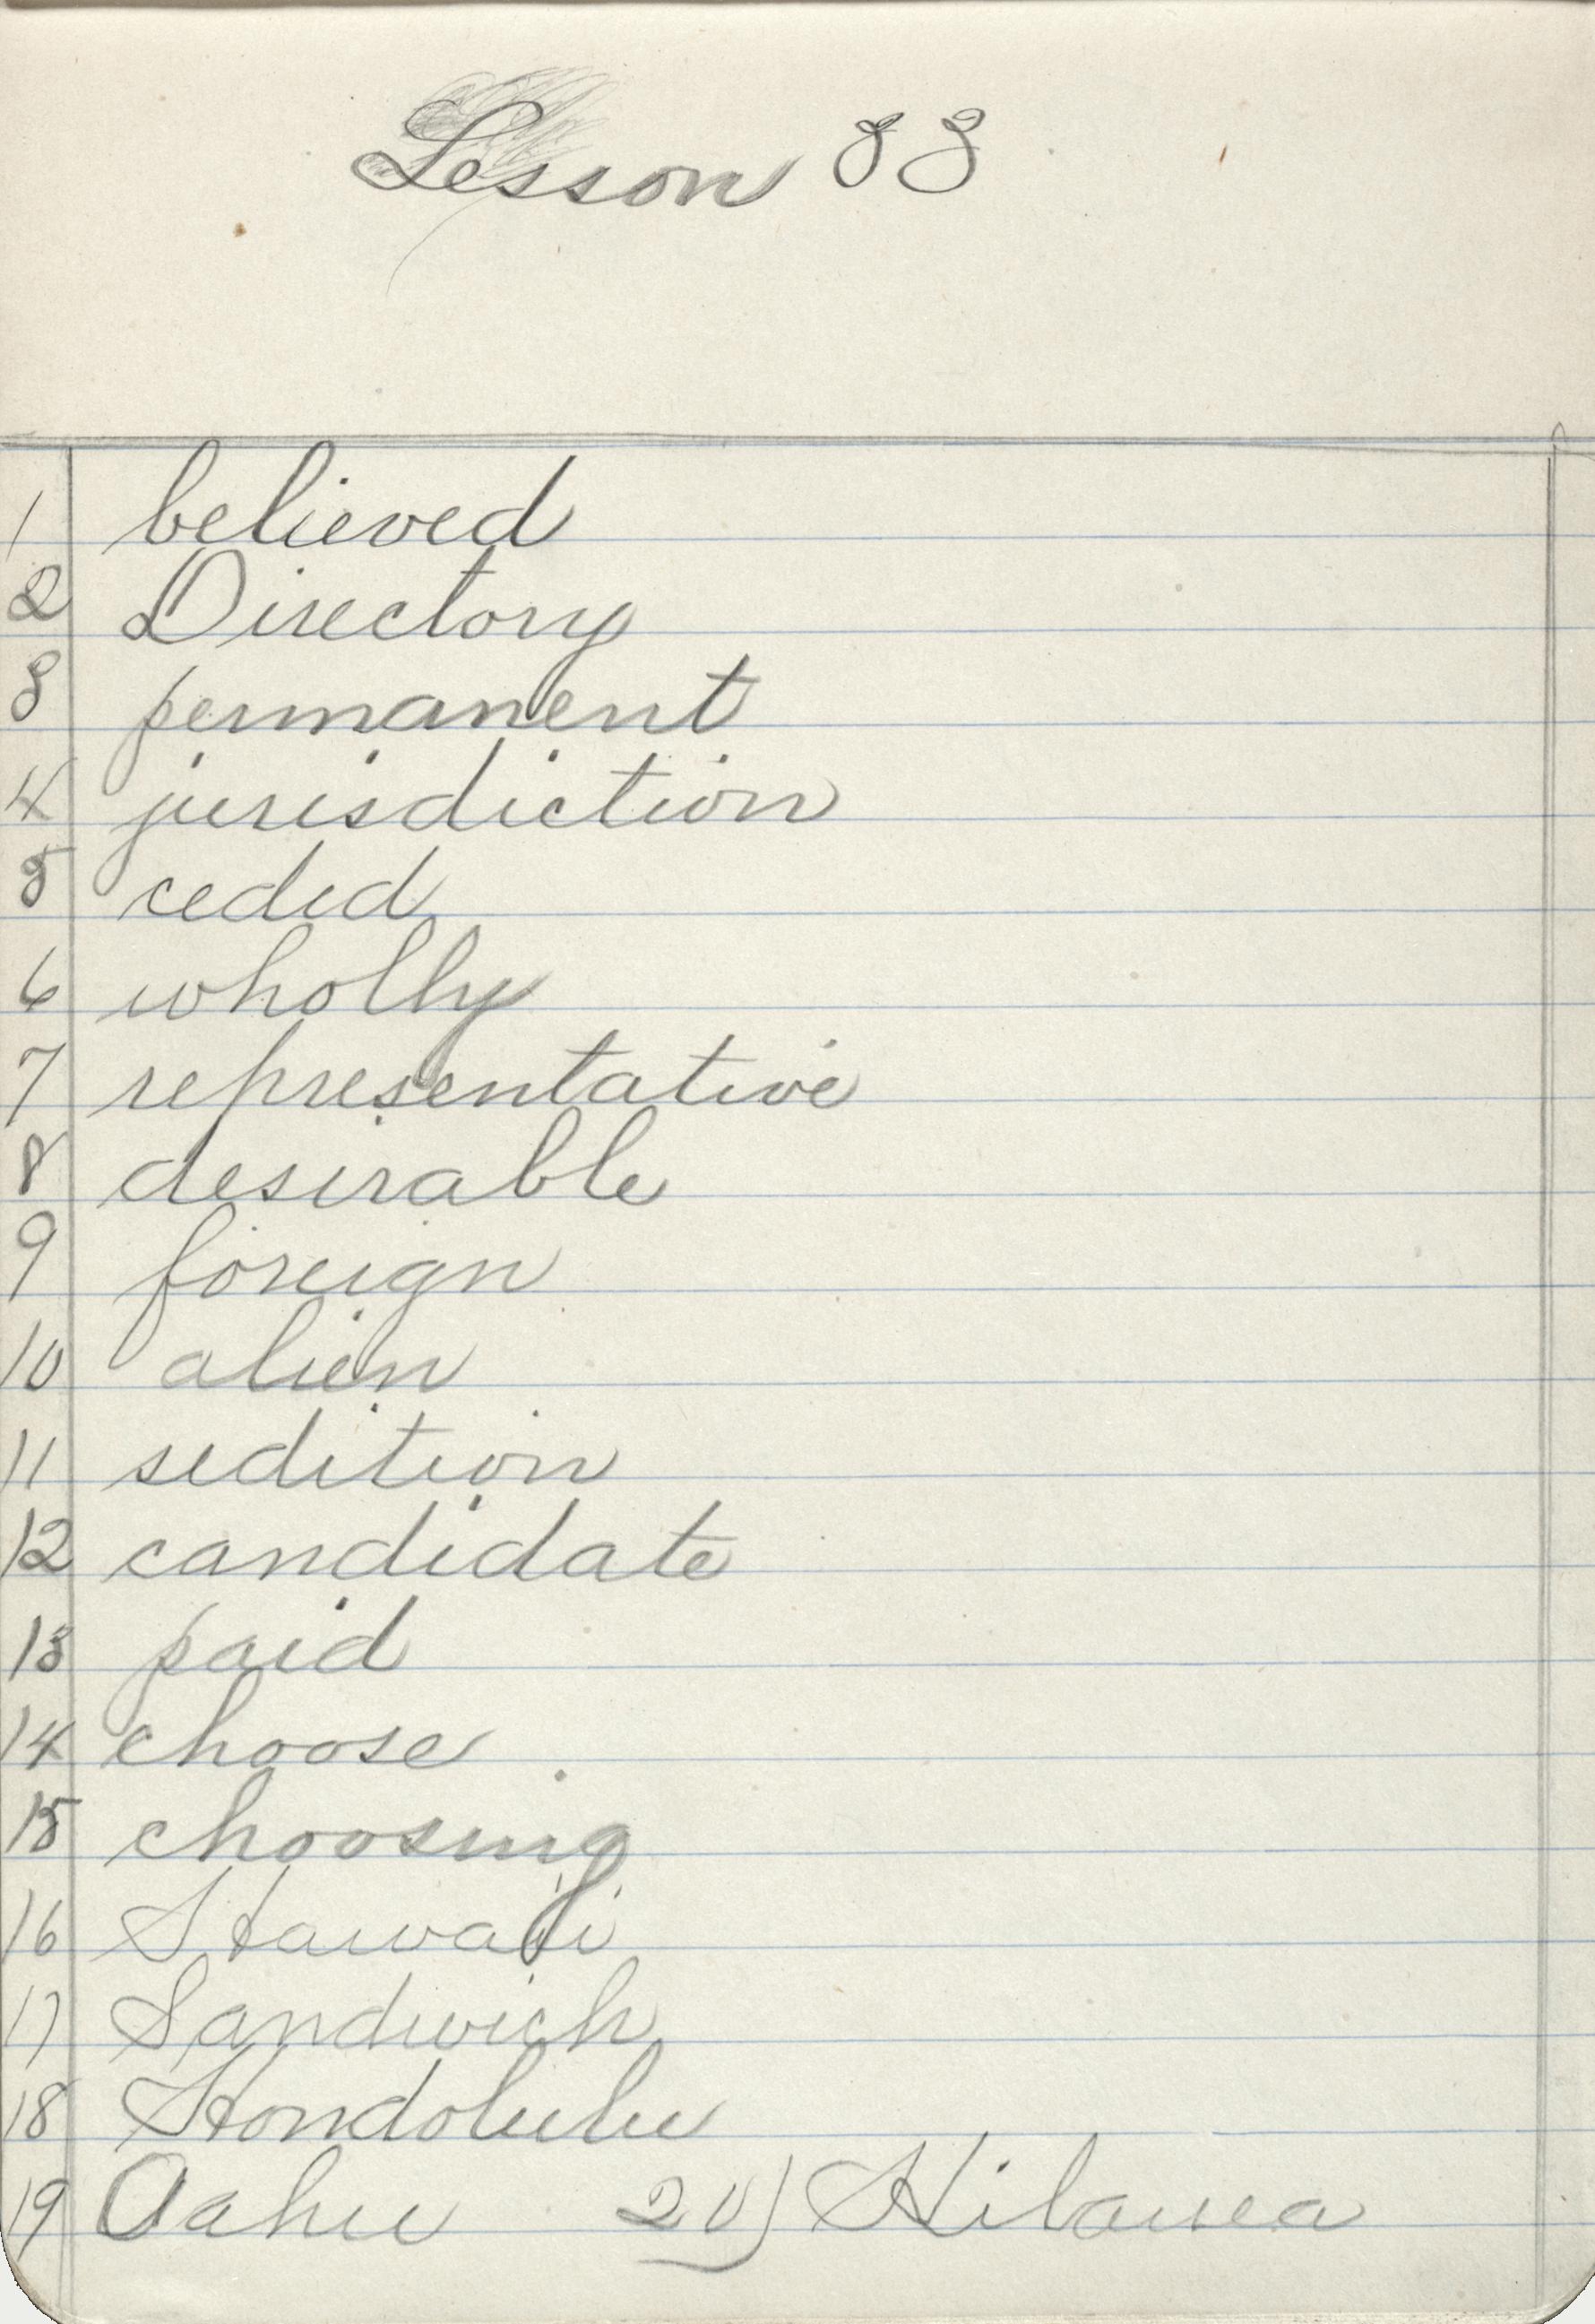 Lesson 83
1 believed
2 Directory
3 permanent
4 jurisdiction
5 ceded
6 wholly
7 representative
8 desirable
9 foreign
10 alien
11 sedition
12 candidate
13 paid
14 choose
15 choosing
16 Hawaii
17 Sandwich
18 Hondolulu
19 Oahu 20) Hilauea